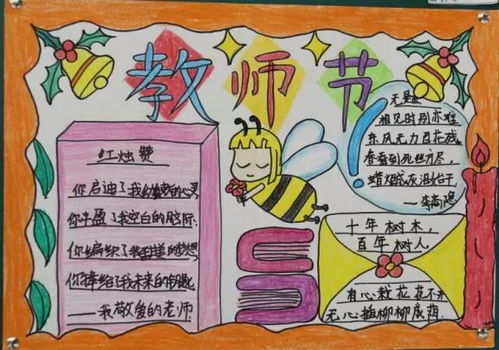 教师节
红烛赞
你启迪了我的心灵
你丰盈了我空白的脑际
你编织了我的梦想
你给了我未来的
——我敬爱的老师
无题
相见时别亦难
东风无力百花残,
春蚕到死丝方尽,
蜡炬成灰泪始干
——李商隐
十年树木,
百年树人
有心栽花花不开
无心插柳柳成荫